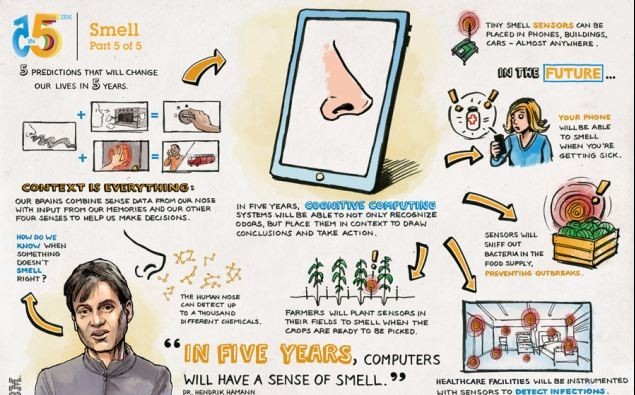 IN 5 IBM
Smell
Part 5 of 5
5 PREDICTIONS THAT WILL CHANGE
OUR LIVES IN 5 YEARS.
+ =
+ =
CONTEXT IS EVERYTHING:
OUR BRAINS COMBINE SENSE DATA FROM OUR NOSE
WITH INPUT FROM OUR MEMORIES AND OUR OTHER
FOUR SENSES TO HELP US MAKE DECISIONS.
HOW DO WE
KNOW WHEN
SOMETHING
DOESN'T
SMELL
RIGHT?
THE HUMAN NOSE
CAN DETECT UP
TO A THOUSAND
DIFFERENT CHEMICALS.
IN FIVE YEARS, COGNITIVE COMPUTING
SYSTEMS WILL BE ABLE TO NOT ONLY RECOGNIZE
ODORS, BUT PLACE THEM IN CONTEXT TO DRAW
CONCLUSIONS AND TAKE ACTION.
FARMERS WILL PLANT SENSORS IN
THEIR FIELDS TO SMELL WHEN THE
CROPS ARE READY TO BE PICKED.
"IN FIVE YEARS, COMPUTERS
WILL HAVE A SENSE OF SMELL."
DR. HENDRIK HAMANN
TINY SMELL SENSORS CAN BE
PLACED IN PHONES, BUILDINGS,
CARS - ALMOST ANYWHERE.
IN THE FUTURE...
YOUR PHONE
WILL BE ABLE
TO SMELL
WHEN YOU'RE
GETTING SICK.
SENSORS WILL
SNIFF OUT
BACTERIA IN THE
FOOD SUPPLY,
PREVENTING OUTBREAKS.
HEALTHCARE FACILITIES WILL BE INSTRUMENTED
WITH SENSORS TO DETECT INFECTIONS.